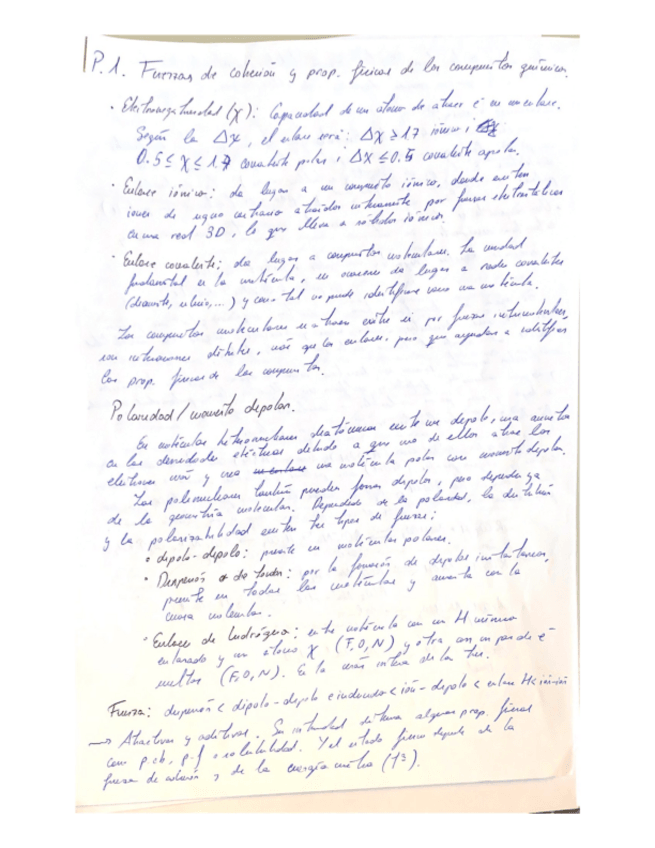 P.1. Fuerzas de cohesión y prop. físicas de los compuestos químicos.
· Electronegatividad (χ): Capacidad de un átomo de atraer e⁻ en un enlace.
Según la Δχ, el enlace será: Δχ ≥ 1.7 iónico;
0.5 ≤ χ ≤ 1.7 covalente polar; Δχ ≤ 0.5 covalente apolar.
· Enlace iónico: da lugar a un compuesto iónico, donde existen
iones de signo contrario atraídos mutuamente por fuerzas electrostáticas
en una red 3D, lo que lleva a sólidos iónicos.
· Enlace covalente: da lugar a compuestos moleculares. La unidad
fundamental es la molécula, en ocasiones da lugar a redes covalentes
(diamante, ...) y como tal no puede identificarse como una molécula.
Los compuestos moleculares se atraen entre sí por fuerzas intermoleculares,
son interacciones débiles, más que los enlaces, pero que ayudan a
las prop. físicas de los compuestos.
Polaridad / momento dipolar.
En moléculas heteronucleares diatómicas existe un dipolo, una
en las densidades eléctricas debido a que uno de ellos atrae los
electrones más y crea una molécula polar con momento dipolar.
Las polinucleares también pueden formar dipolos, pero dependen ya
de la geometría molecular. Dependiendo de la polaridad, la
y la polarizabilidad existen tres tipos de fuerzas:
· dipolo-dipolo: presente en moléculas polares.
· Dispersión o de London: por la formación de dipolos instantáneos,
presente en todas las moléculas y aumenta con la
masa molecular.
· Enlace de hidrógeno: entre molécula con un H
enlazado y un átomo χ (F, O, N) y otra con un par de e⁻
(F, O, N). Es la más intensa de las tres.
Fuerza: dispersión < dipolo-dipolo < ión-dipolo < enlace H <
→ Atractivas y aditivas. Su intensidad determina algunas prop. físicas
como p.eb, p.f o solubilidad. Y el estado físico depende de la
fuerza de cohesión y de la energía cinética